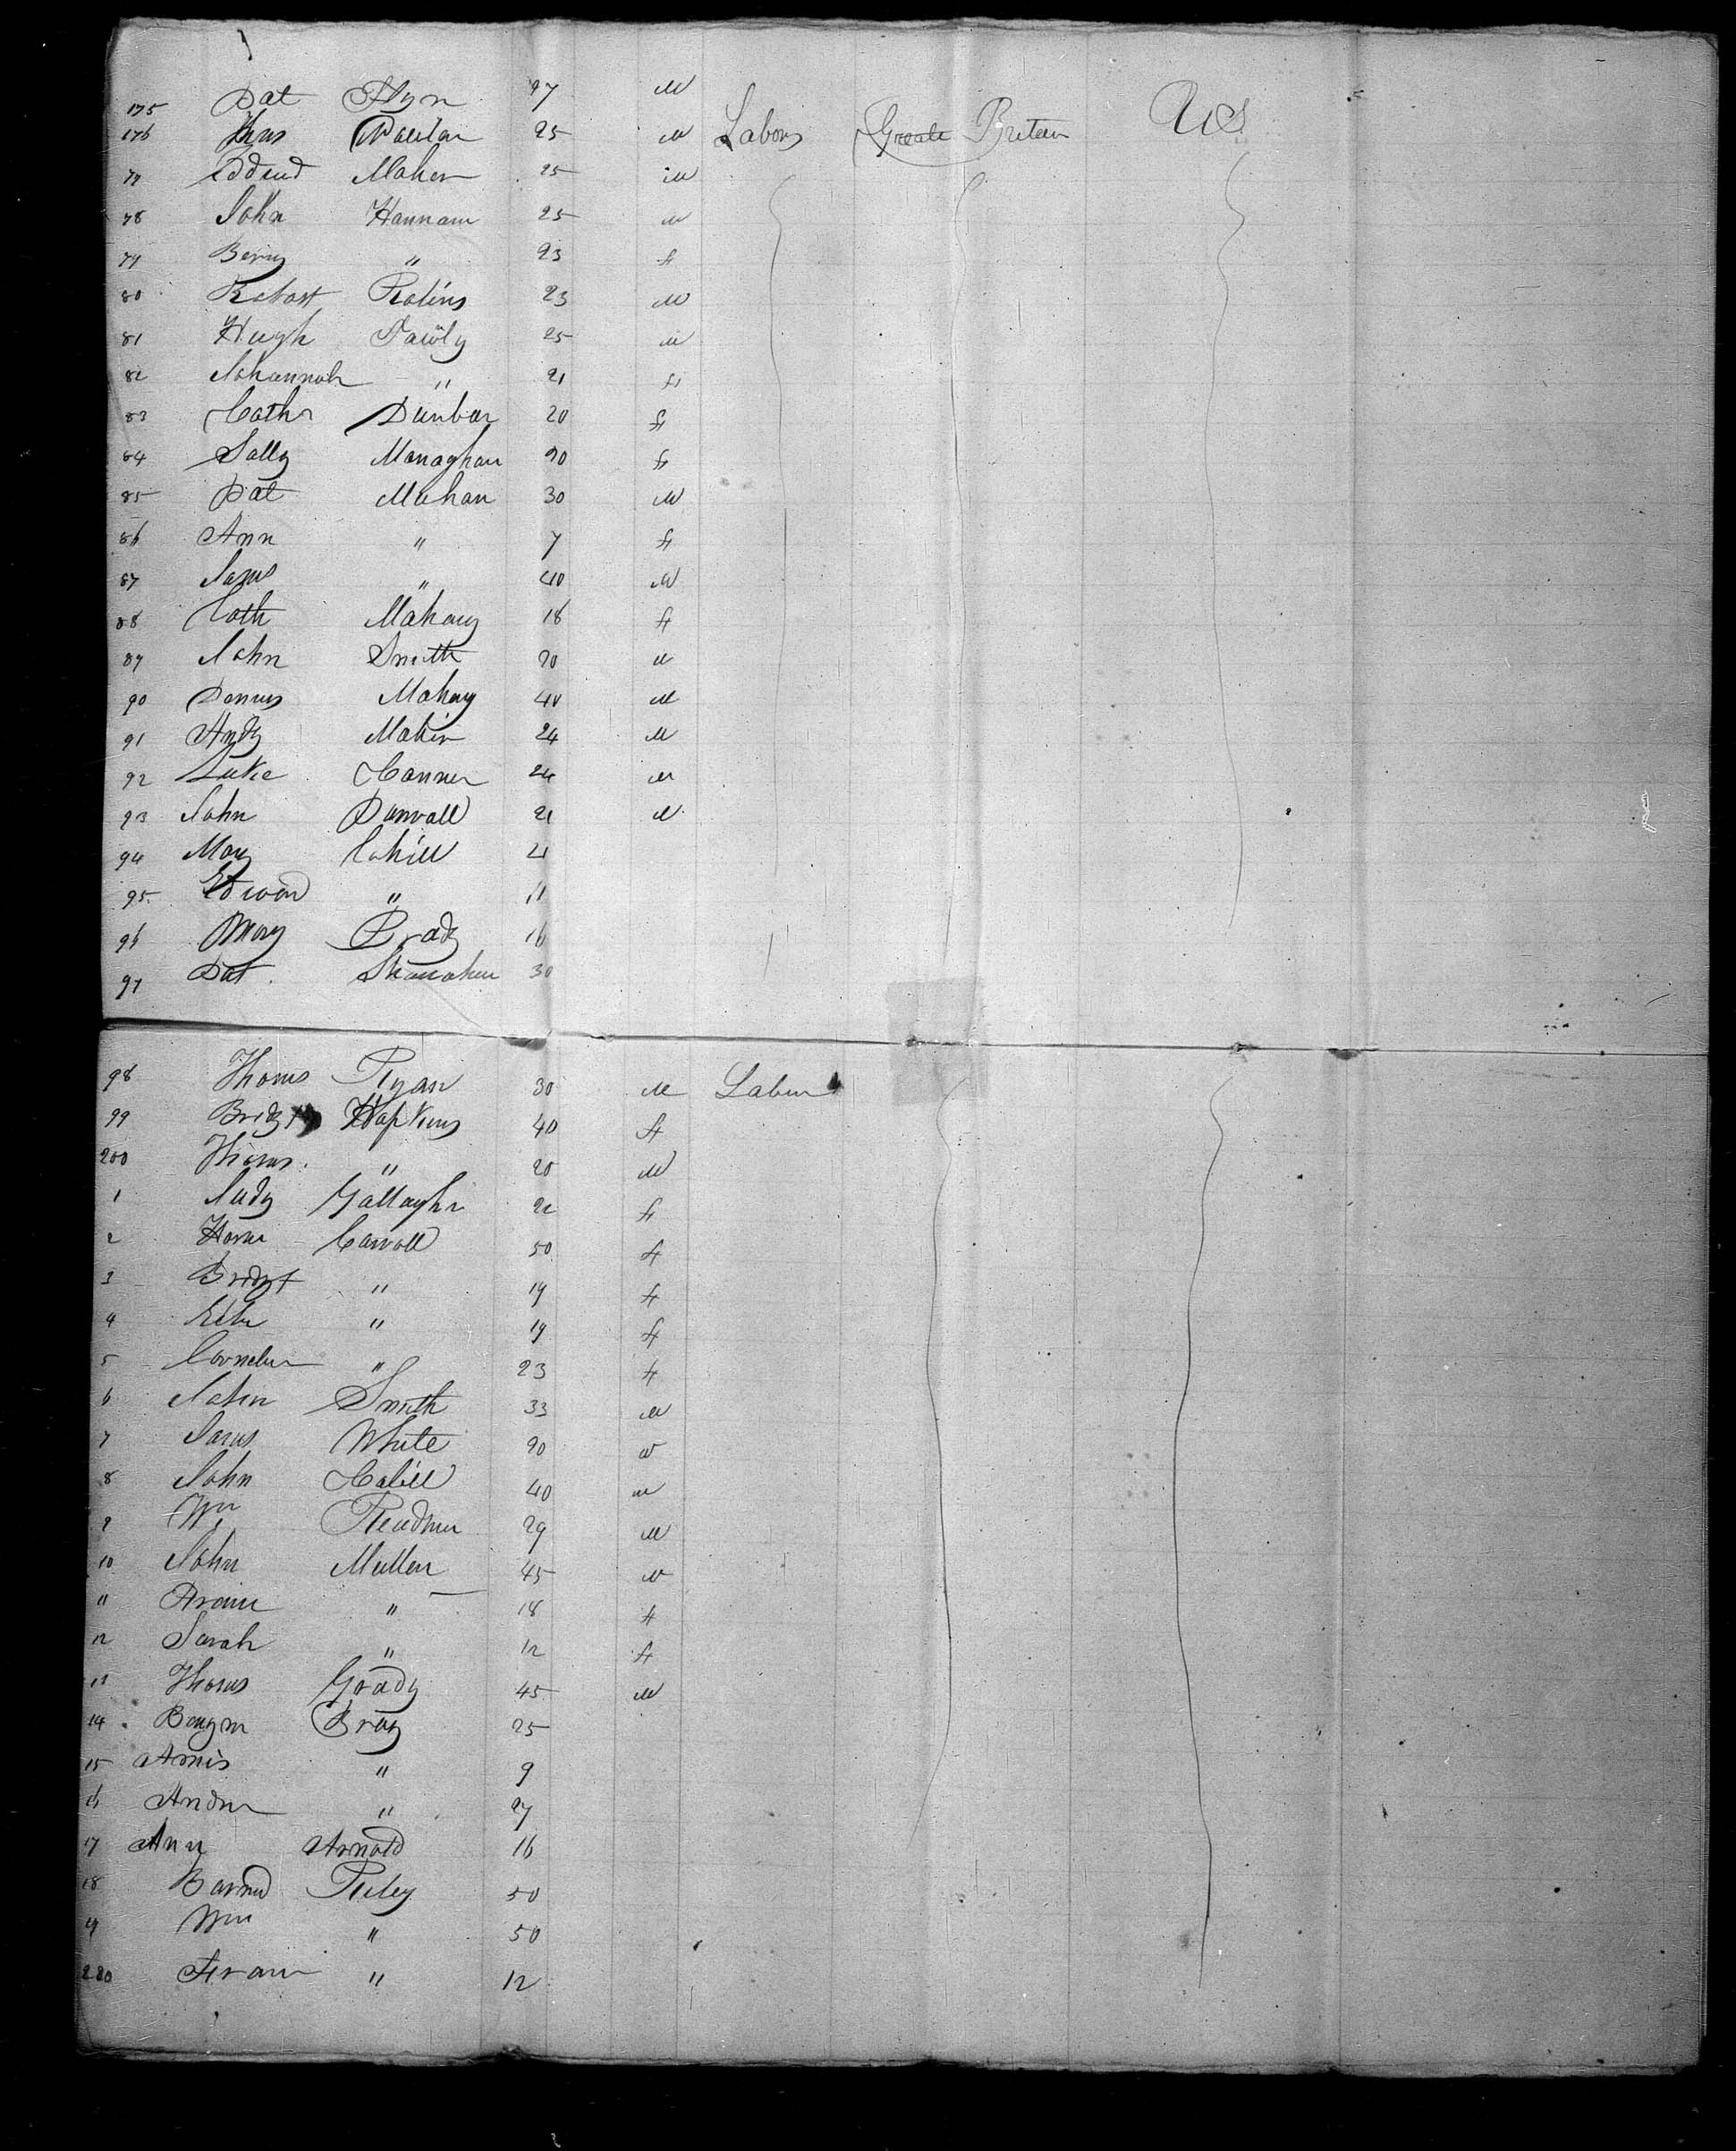 175 Pat Flyn 27 M
176 Thos 25 M Labors Greate Britain U S
77 Edmd Maher 25 M
78 John Hannam 25 M
79 23 f
80 Robart 23 M
81 Hugh 25 M
82 Johannah " 21 f
83 Cath Dunbar 20 f
84 Sally Monaghan 20 f
85 Pat Mahan 30 M
86 Ann " 7 f
87 Jams " 40 M
88 Cath Mahony 18 f
89 John Smith 20 M
90 Dennis Mahony 40 M
91 Andy Maher 24 M
92 Luke Conner 24 M
93 John 21 M
94 Mary Cahill 21
95 Edward " 11
96 Mary Brady 16
97 Pat Shanahan 30
98 Thoms Ryan 30 M Labor
99 Bridgt Hopkins 40 f
200 Thoms " 20 M
1 Judy Gallagher f
2 Carroll 50 f
3 Bridgt " 19 f
4 Ellen " 19 f
5 Cornelius " 23 f
6 John Smith 33 M
7 Jams White 20 M
8 John Cahill 40 M
9 Wm 29 M
10 John Mullen 45 M
11 " 18 f
12 Sarah " 12 f
13 Thoms Grady 45 M
14 Bray 25
15 " 9
16 Andrew " 27
17 Ann Arnold 16
18 Barnd Riley 50
19 Wm " 50
220 " 12